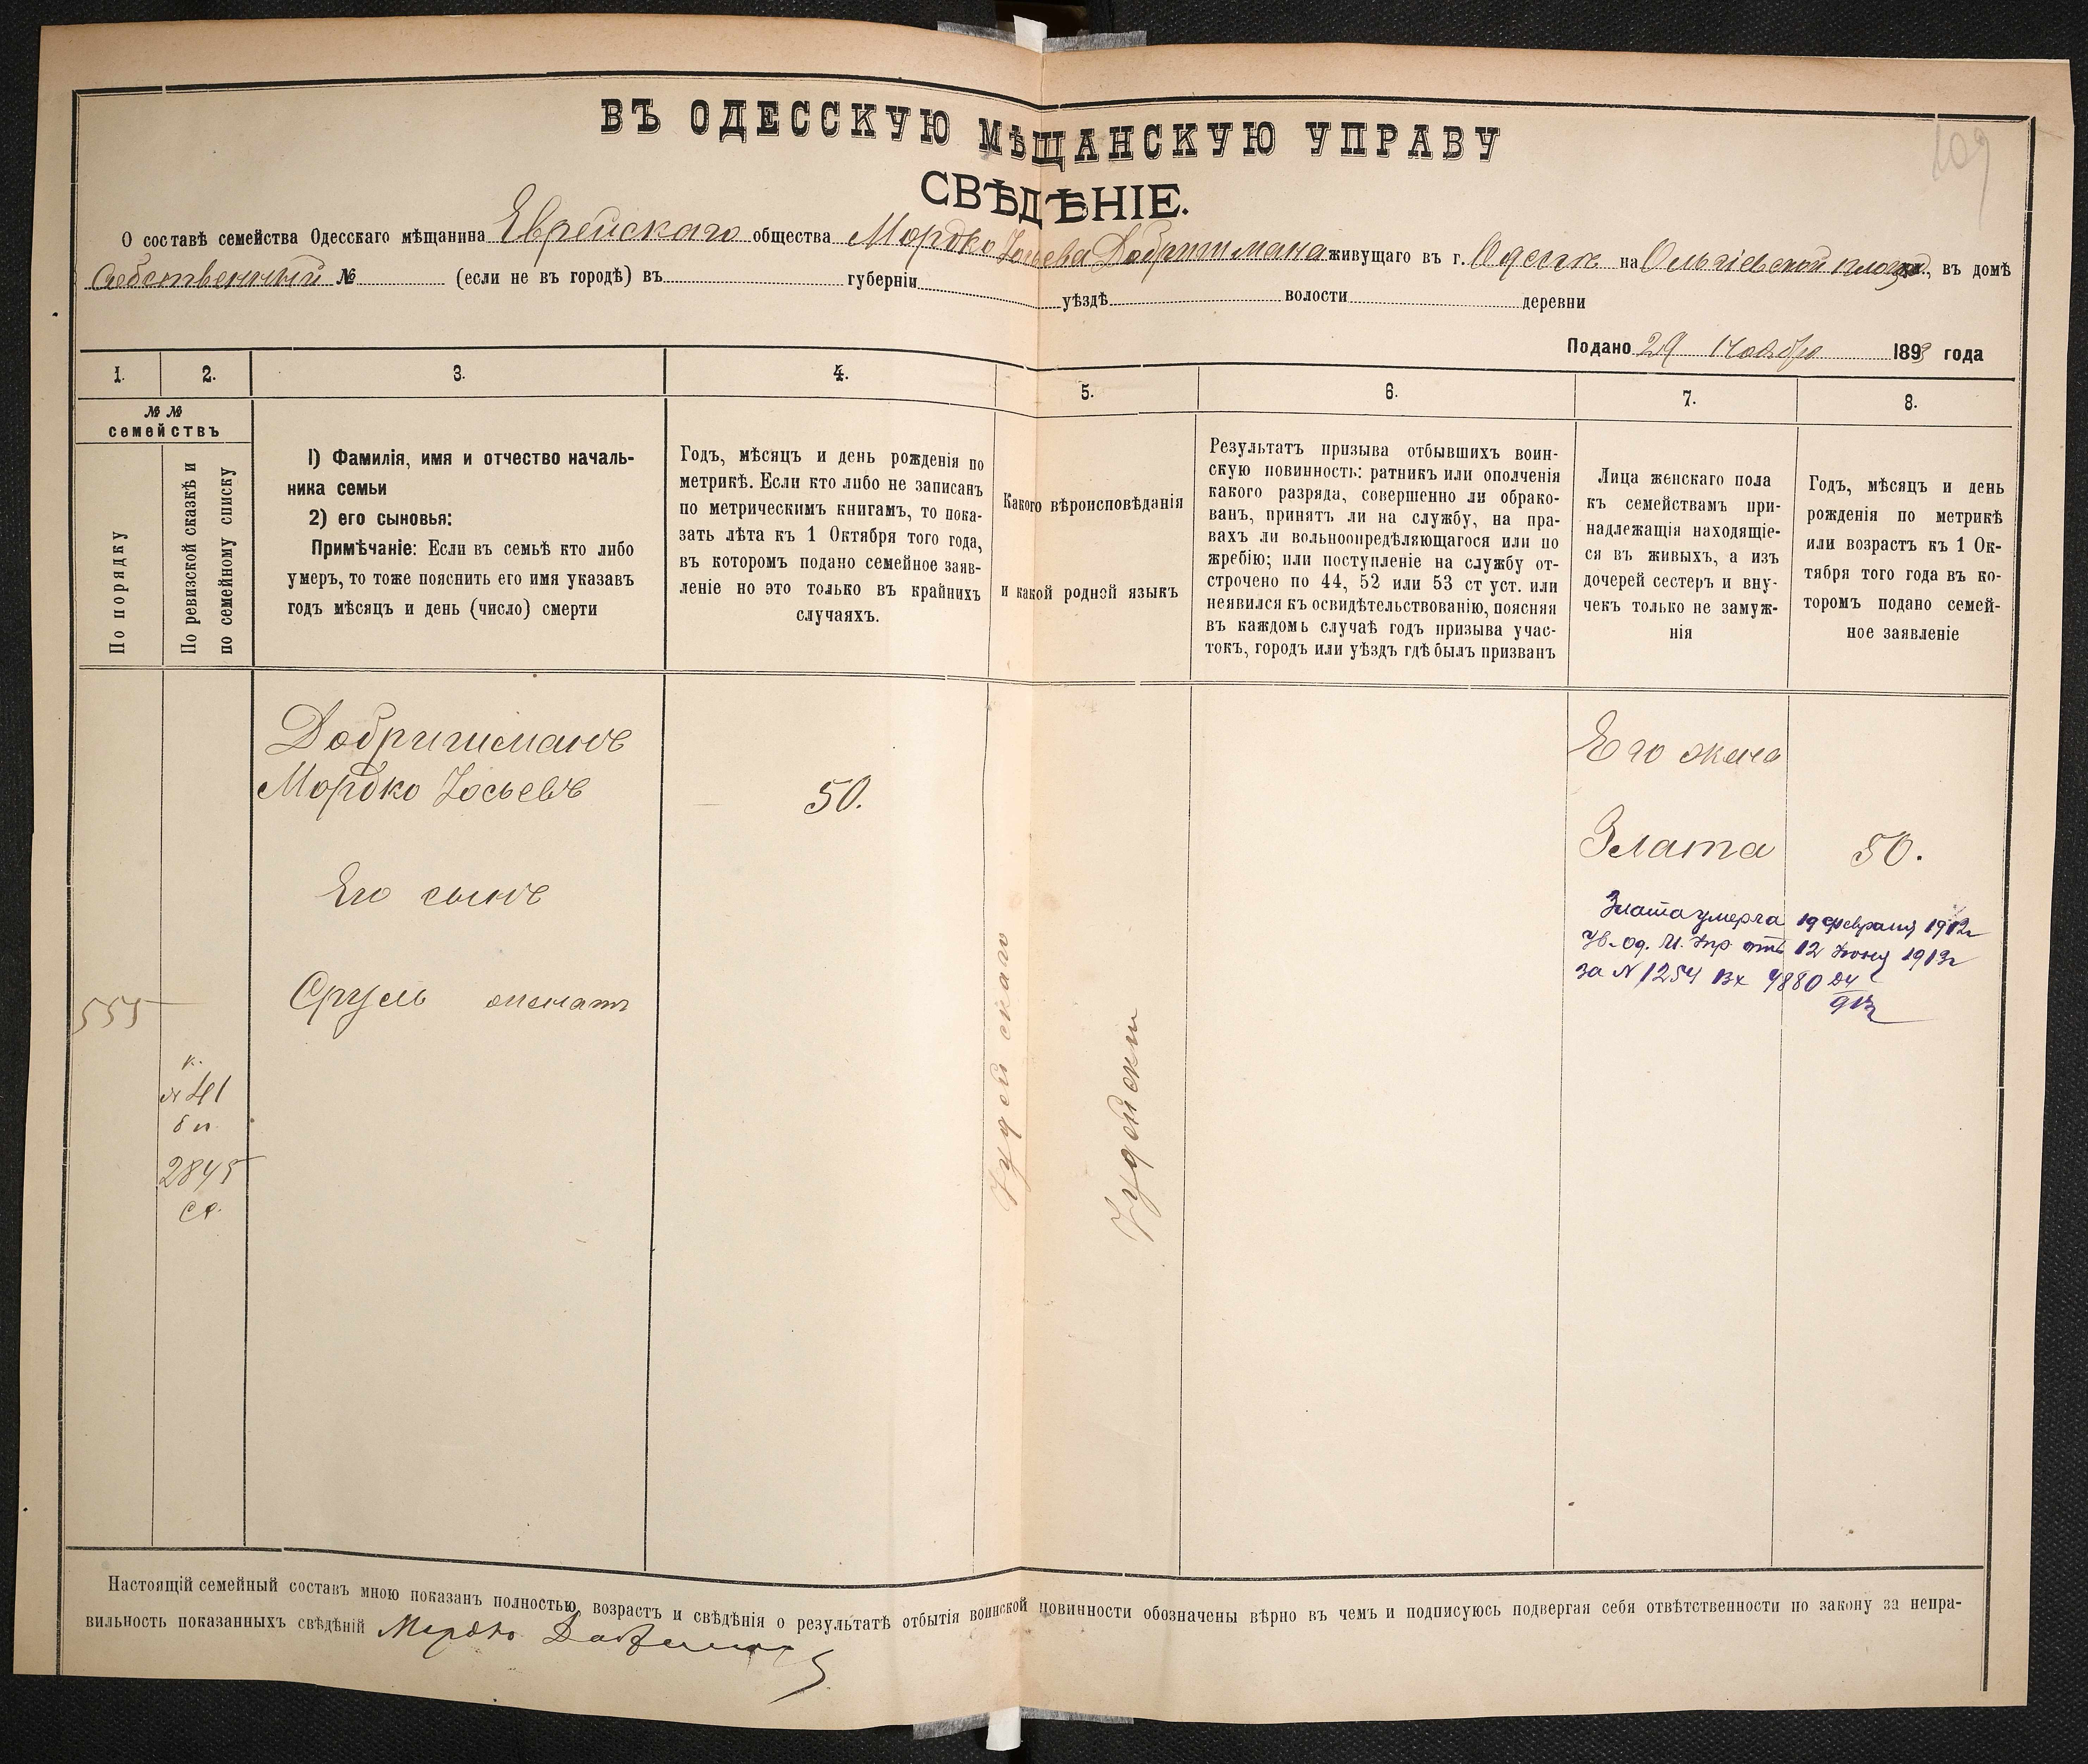 109
ВЪ ОДЕССКУЮ МѢЩАНСКУЮ УПРАВУ
СВѢДѢНІЕ.
О составѣ семейства Одесскаго мѣщанина Еврейскаго общества Мордко Іосьева Добришмана живущаго въ г. Одессѣ на Ольгіевской площ., въ домѣ
Собственный № (если не въ городѣ) въ губерніи уѣздѣ волости деревни
Подано 29 Ноября 1893 года
1. 2. 3. 4. 5. 6. 7. 8.
№ №
семействъ
По порядку
По ревизской сказкѣ и
по семейному списку
1) Фамилія, имя и отчество началь-
ника семьи
2) его сыновья:
Примѣчаніе: Если въ семьѣ кто либо
умеръ, то тоже пояснить его имя указавъ
годъ мѣсяцъ и день (число) смерти
Годъ, мѣсяцъ и день рожденія по
метрикѣ. Если кто либо не записанъ
по метрическимъ книгамъ, то пока-
зать лѣта къ 1 Октября того года,
въ которомъ подано семейное заяв-
леніе но это только въ крайнихъ
случаяхъ.
Какого вѣроисповѣданія
и какой родной языкъ
Результатъ призыва отбывшихъ воин-
скую повинность: ратникъ или ополченія
какого разряда, совершенно ли обрако-
ванъ, принятъ ли на службу, на пра-
вахъ ли вольноопредѣляющагося или по
жребію; или поступленіе на службу от-
строчено по 44, 52 или 53 ст уст. или
неявился къ освидѣтельствованію, поясняя
въ каждомъ случаѣ годъ призыва учас-
токъ, городъ или уѣздъ гдѣ былъ призванъ
Лица женскаго пола
къ семействамъ при-
надлежащія находящіе-
ся въ живыхъ, а изъ
дочерей сестеръ и вну-
чекъ только не замуж-
нія
Годъ, мѣсяцъ и день
рожденія по метрикѣ
или возрастъ къ 1 Ок-
тября того года въ ко-
торомъ подано семей-
ное заявленіе
Добришманъ
Мордко Іосьевъ
50.
Его сынъ
Сруль женатъ
555
к.
№ 41
бп
2845
сс.
Іудейскаго
Іудейскій
Его жена
Злата
50.
Злата умерла 19 февраля 1912г
Ув. Од. М. Упр. отъ 12 Іюня 1913г
за № 1254 Вх 4880 24
913
Настоящій семейный составъ мною показанъ полностью, возрастъ и свѣдѣнія о результатѣ отбытія воинской повинности обозначены вѣрно въ чемъ и подписуюсь подвергая себя отвѣтственности по закону за непра-
вильность показанныхъ свѣдѣній Мордко